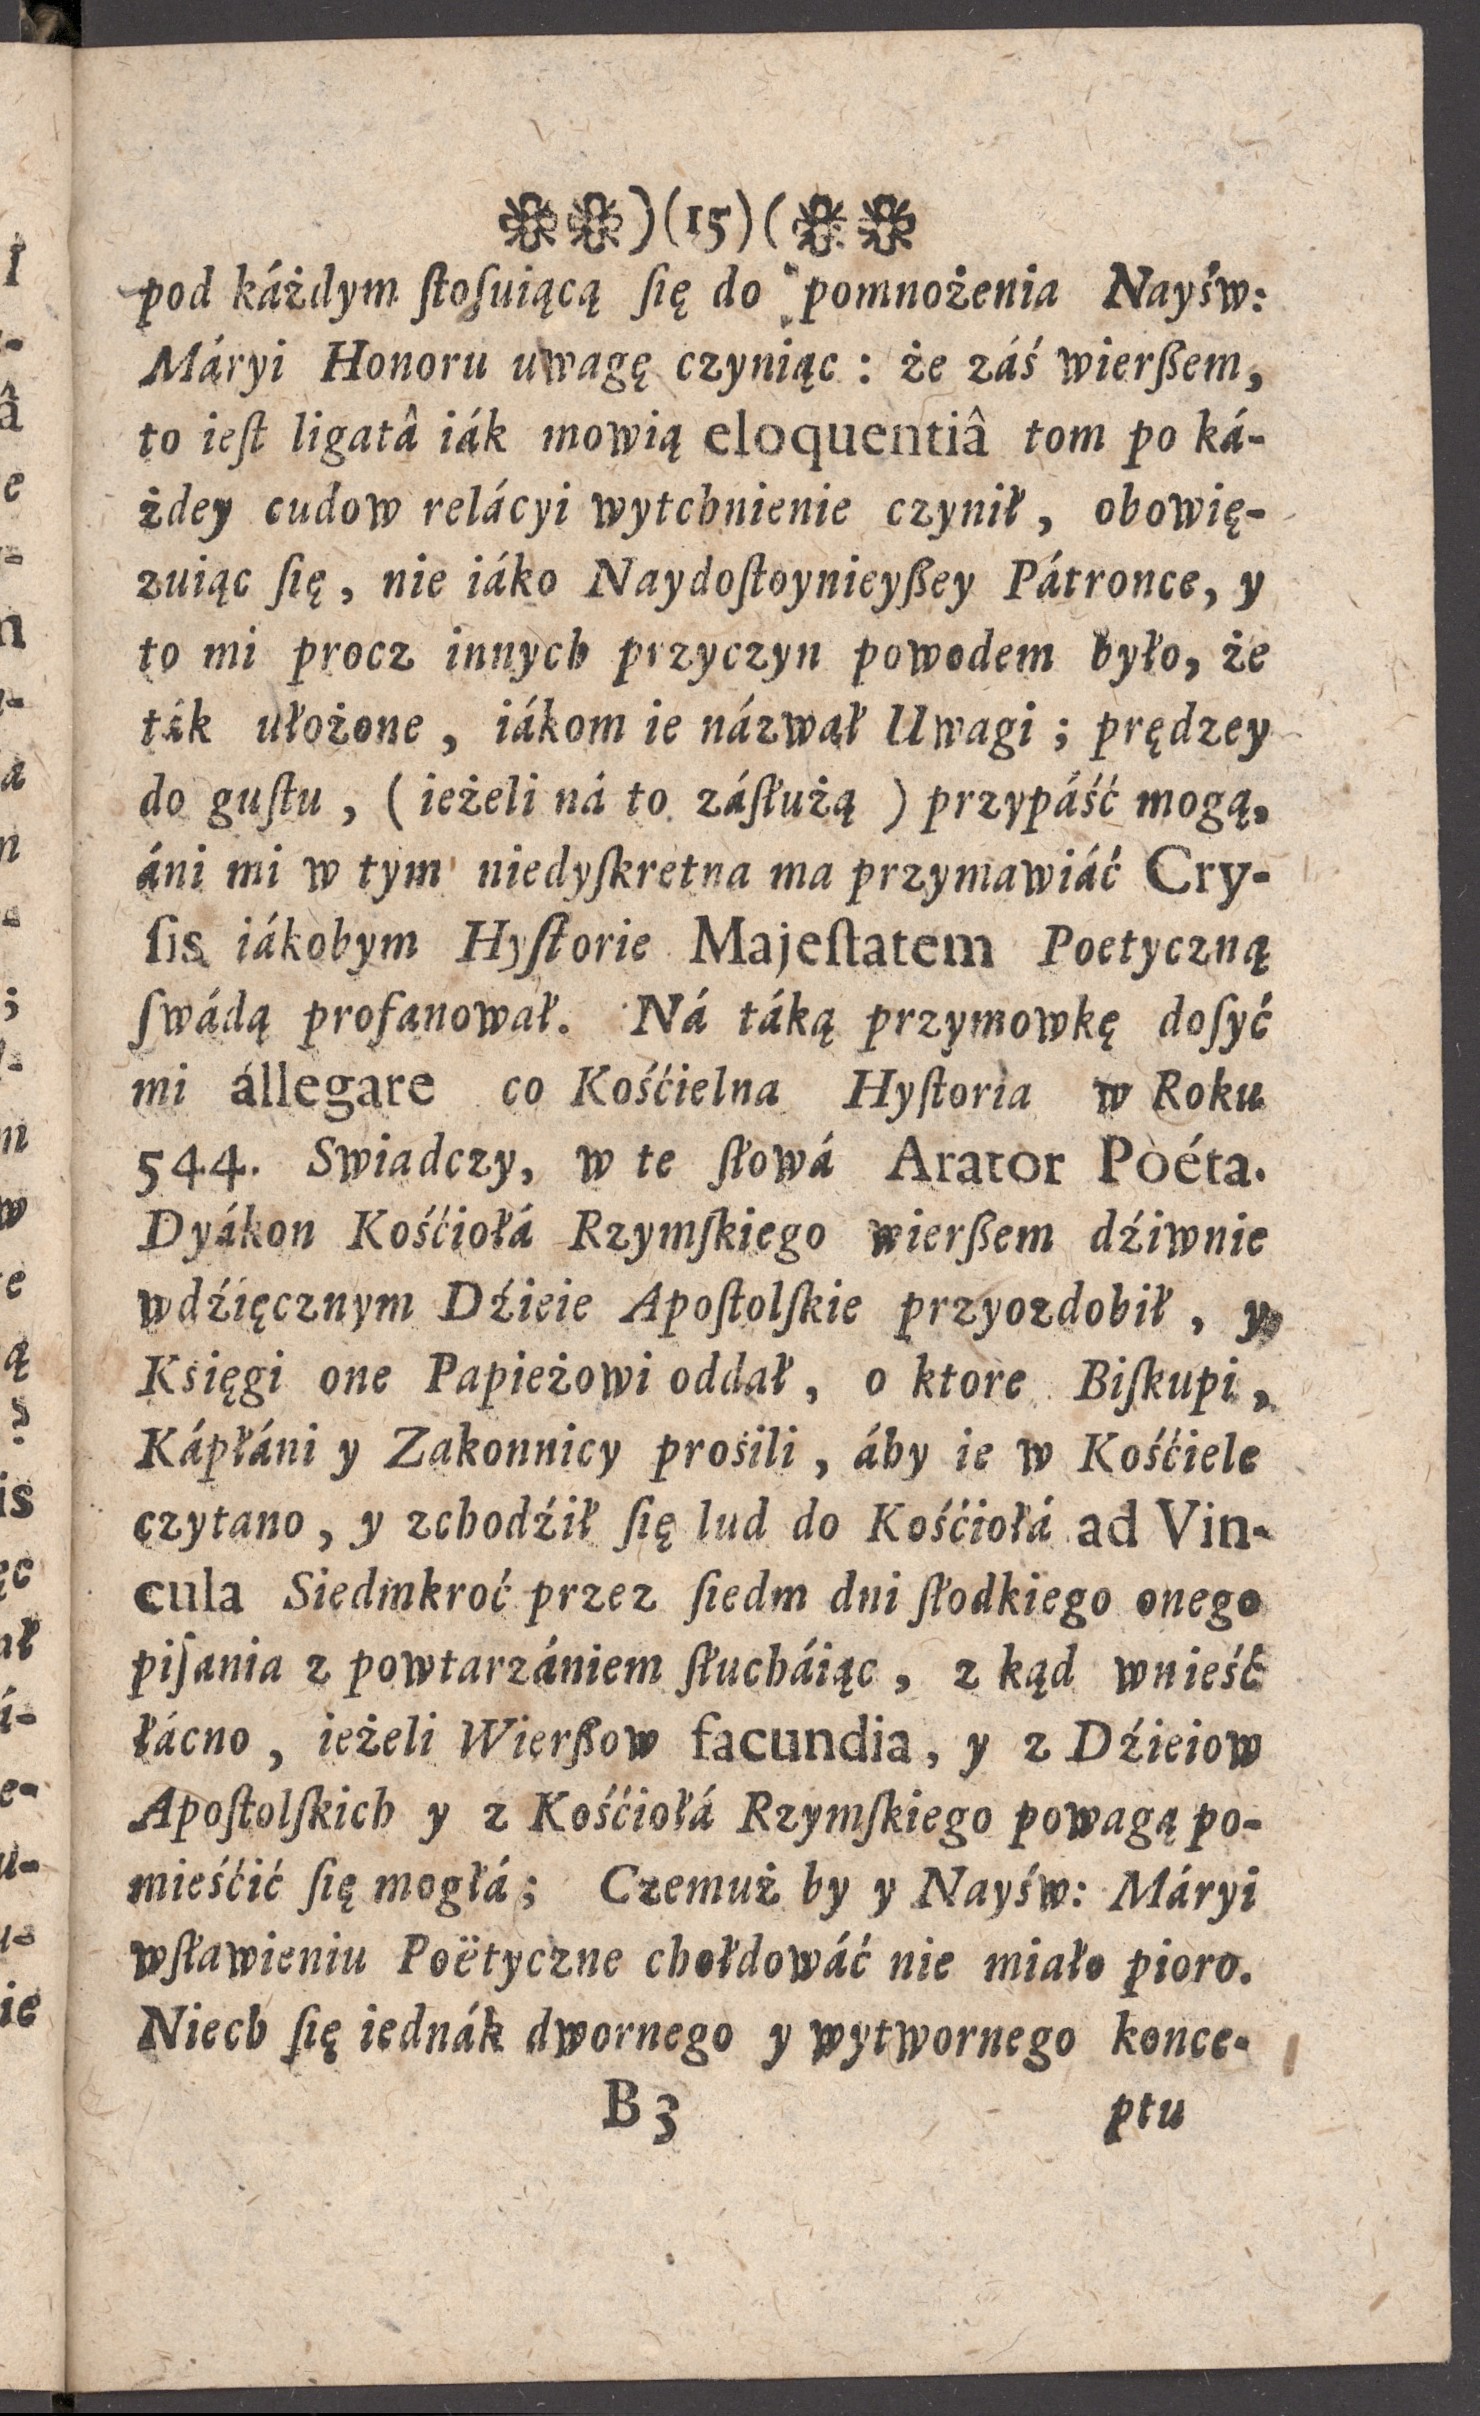 )(15)(
pod káżdym ſtoſuiącą ſię do pomnożenia Nayśw:
Máryi Honoru uwagę czyniąc : że záś wierßem,
to ieſt ligatâ iák mowią eloquentiâ tom po ká-
żdey cudow relácyi wytchnienie czynił, obowię-
zuiąc ſię, nie iáko Naydoſtoynieyßey Pátronce, y
to mi procz innych przyczyn powodem było, że
ták ułożone, iákom ie názwał Uwagi ; prędzey
do guſtu, (ieżeli ná to záſłużą ) przypáść mogą,
áni mi w tym niedyſkretna ma przymawiáć Cry-
ſis iákobym Hyſtorie Majeſtatem Poetyczną
ſwádą profanował. Ná táką przymowkę doſyć
mi állegare co Kośćielna Hyſtoria w Roku
544. Swiadczy, w te ſłowá Arator Poéta.
Dyákon Kośćiołá Rzymſkiego wierßem dźiwnie
wdźięcznym Dźieie Apoſtolſkie przyozdobił, y
Księgi one Papieżowi oddał, o ktore Biſkupi,
Kápłáni y Zakonnicy prosili, áby ie w Kośćiele
czytano, y zchodźił ſię lud do Kośćiołá ad Vin-
cula Siedmkroć przez ſiedm dni ſłodkiego onego
piſania z powtarzániem ſłucháiąc, z kąd wnieść
łácno, ieżeli Wierßow facundia, y z Dźieiow
Apoſtolſkich y z Kośćiołá Rzymſkiego powagą po-
mieśćić ſię mogłá; Czemuż by y Nayśw: Máryi
wſławieniu Poëtyczne chołdowáć nie miało pioro.
Niech ſię iednák dwornego y wytwornego konce-
B3 ptu